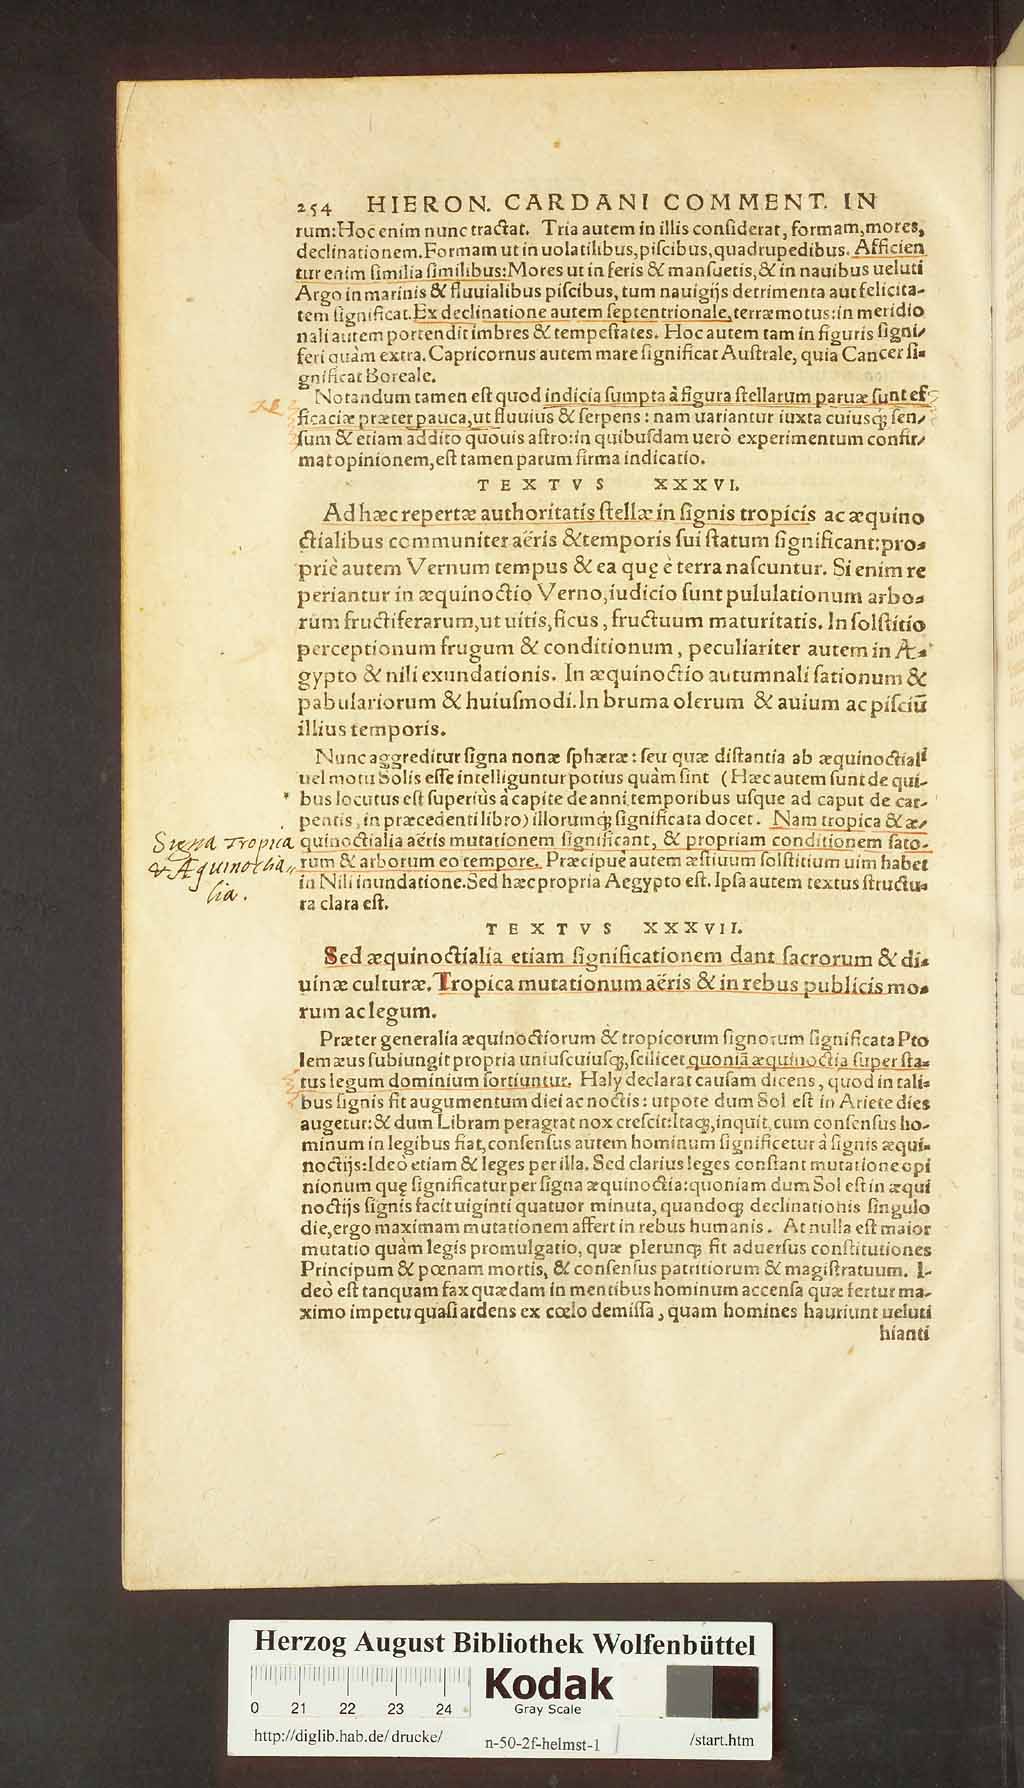 254 HIERON. CARDANI COMMENT. IN
rum: Hoc enim nunc tractat. Tria autem in illis conſiderat, formam, mores,
declinationem. Formam ut in uolatilibus, piſcibus, quadrupedibus. Afficien
tur enim ſimilia ſimilibus: Mores ut in feris & manſuetis, & in nauibus ueluti
Argo in marinis & fluuialibus piſcibus, tum nauigijs detrimenta aut felicita-
tem ſignificat. Ex declinatione autem ſeptentrionale, terræmotus: in meridio
nali autem portendit imbres & tempeſtates. Hoc autem tam in figuris ſigni-
feri quàm extra. Capricornus autem mare ſignificat Auſtrale, quia Cancer ſi-
gnificat Boreale.
Notandum tamen eſt quod indicia ſumpta à figura ſtellarum paruæ ſunt ef-
ficaciæ præter pauca, ut fluuius & ſerpens: nam uariantur iuxta cuiusq; ſen-
ſum & etiam addito quouis aſtro: in quibuſdam uerò experimentum confir-
mat opinionem, eſt tamen parum firma indicatio.
TEXTVS XXXVI.
Ad hæc repertæ authoritatis ſtellæ in ſignis tropicis ac æquino
ctialibus communiter aëris & temporis ſui ſtatum ſignificant: pro-
priè autem Vernum tempus & ea quę è terra naſcuntur. Si enim re
periantur in æquinoctio Verno, iudicio ſunt pululationum arbo-
rum fructiferarum, ut uitis, ficus, fructuum maturitatis. In ſolſtitio
perceptionum frugum & conditionum, peculiariter autem in Æ-
gypto & nili exundationis. In æquinoctio autumnali ſationum &
pabulariorum & huiuſmodi. In bruma olerum & auium ac piſciũ
illius temporis.
Nunc aggreditur ſigna nonæ ſphæræ: ſeu quæ diſtantia ab æquinoctiali
uel motu Solis eſſe intelliguntur potius quàm ſint (Hæc autem ſunt de qui-
bus locutus eſt ſuperiùs à capite de anni temporibus uſque ad caput de car-
pentis, in præcedenti libro) illorumq; ſignificata docet. Nam tropica & æ-
Signa Tropica
& Æquinoctia
lia.
quinoctialia aëris mutationem ſignificant, & propriam conditionem ſato-
rum & arborum eo tempore. Præcipuè autem æſtiuum ſolſtitium uim habet
in Nili inundatione. Sed hæc propria Aegypto eſt. Ipſa autem textus ſtructu-
ra clara eſt.
TEXTVS XXXVII.
Sed æquinoctialia etiam ſignificationem dant ſacrorum & di-
uinæ culturæ. Tropica mutationum aëris & in rebus publicis mo-
rum ac legum.
Præter generalia æquinoctiorum & tropicorum ſignorum ſignificata Pto
lemæus ſubiungit propria uniuſcuiuſq;, ſcilicet quoniã æquinoctia ſuper ſta-
tus legum dominium ſortiuntur. Haly declarat cauſam dicens, quod in tali-
bus ſignis fit augumentum diei ac noctis: utpote dum Sol eſt in Ariete dies
augetur: & dum Libram peragrat nox creſcit: Itaq;, inquit, cum conſenſus ho-
minum in legibus fiat, conſenſus autem hominum ſignificetur à ſignis æqui-
noctijs: Ideò etiam & leges per illa. Sed clarius leges conſtant mutatione opi
nionum quę ſignificatur per ſigna æquinoctia: quoniam dum Sol eſt in æqui
noctijs ſignis facit uiginti quatuor minuta, quandoq; declinationis ſingulo
die, ergo maximam mutationem affert in rebus humanis. At nulla eſt maior
mutatio quàm legis promulgatio, quæ plerunq; fit aduerſus conſtitutiones
Principum & pœnam mortis, & conſenſus patritiorum & magiſtratuum. I-
deò eſt tanquam fax quædam in mentibus hominum accenſa quæ fertur ma-
ximo impetu quaſi ardens ex cœlo demiſſa, quam homines hauriunt ueluti
hianti
Herzog August Bibliothek Wolfenbüttel
Kodak
Gray Scale
0 21 22 23 24
http://diglib.hab.de/drucke/ n-50-2f-helmst-1 /start.htm